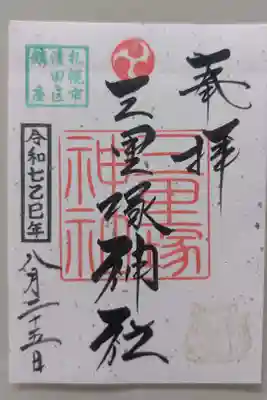 奉拝
札幌市
清田区
鎮座
三里塚神社
三里塚
神社
令和七乙巳年
八月二十五日